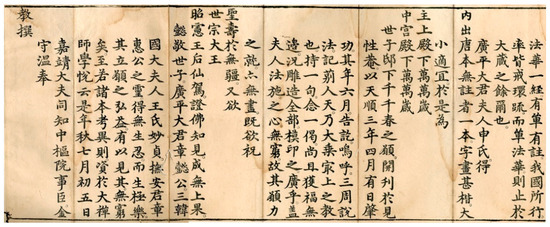 法華一經有單有註我國所行
率皆戒環疏而單法華則止於
大藏之餘爾也
廣平大君夫人申氏得
內出唐本無註者一本字畫甚楷大
小適宜於是為
主上殿下萬萬歲
中宮殿下萬萬歲
世子邸下千千春之願開刊於見
性菴以天順三年四月有日肇
功其年六月告訖嗚呼三周說
法記莂人天乃大乘最上之教
也持一句念一偈尚且獲福無
邊況雕造全部模印之廣乎盖
夫人法施之心無窮故其願力
之就亦無盡既欲祝
聖壽於無疆又欲
世宗大王
昭憲王后仙駕證佛知見成無上果
懿敬世子廣平大君章懿公三韓
國大夫人王氏妙貞撫安君章
惠公之靈得無生忍而生極樂
其立願之弘益有以見其無窮
矣至若諸本考異則資於大禪
師學悅云是年秋七月初五日
嘉靖大夫同知中樞院事臣金
守溫奉
教撰